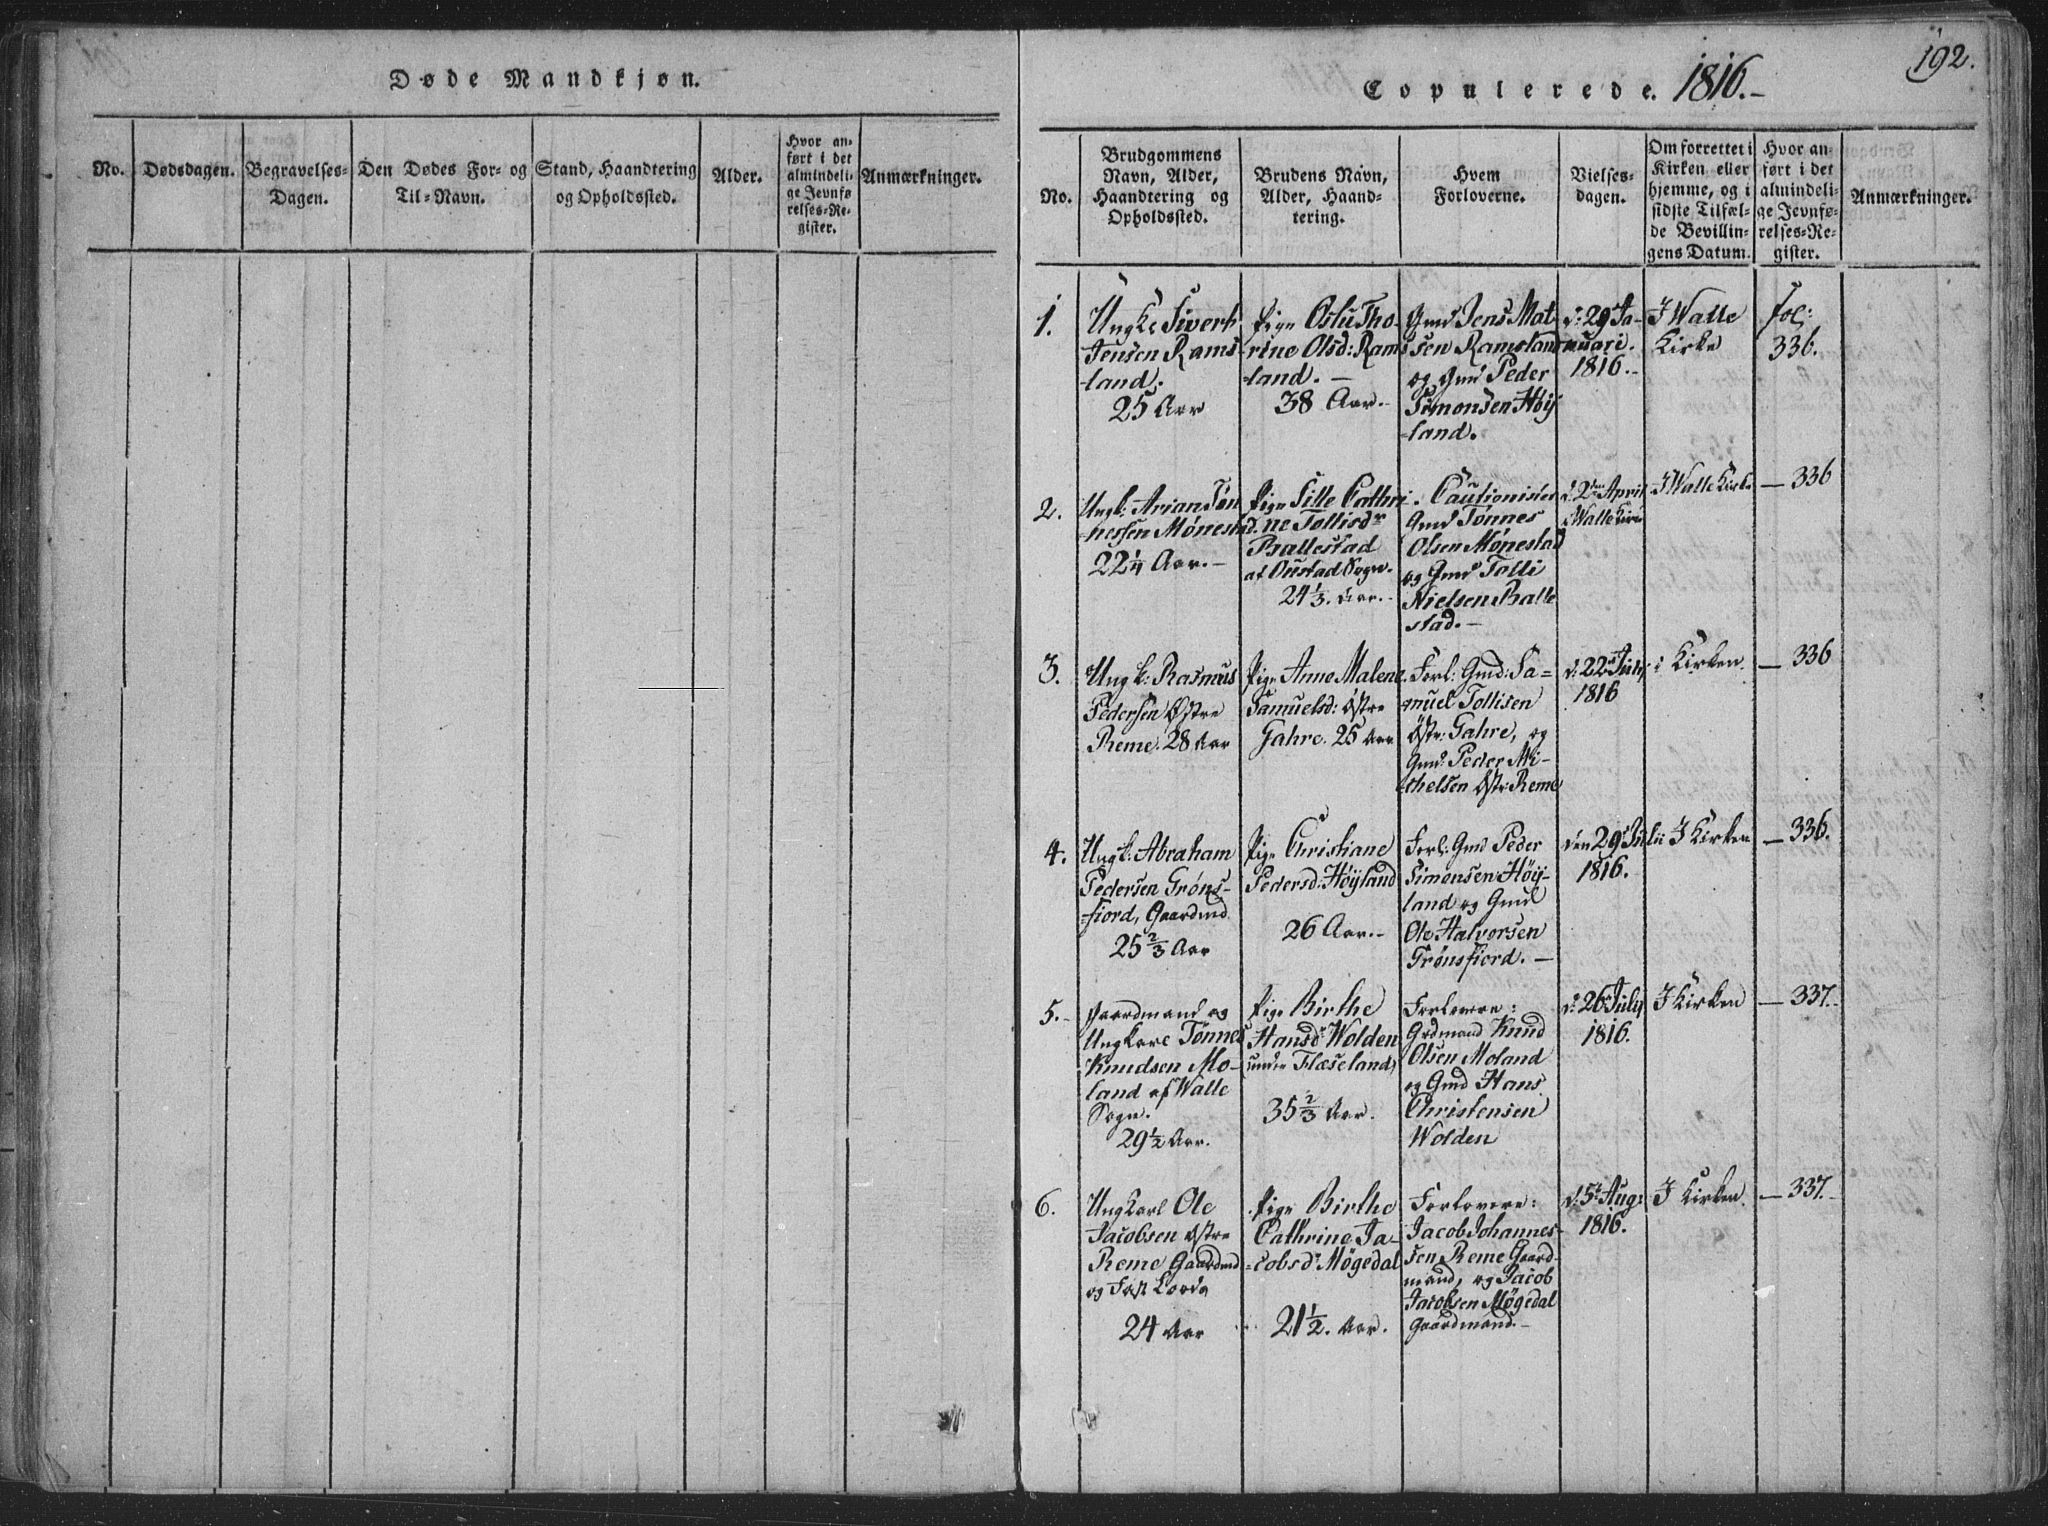 Døde Mandkjøn.
No.
Dødsdagen.
Begravelses-
Dagen.
Den Dødes For- og
Til-Navn.
Stand, Haandtering
og Opholdssted.
Alder.
Hvor an-
ført i det
almindeli-
ge Jevnfø-
relses-Re-
gister.
Anmærkninger.
192.
Copulerede. 1816.-
No.
Brudgommens
Navn, Alder,
Haandtering og
Opholdssted.
Brudens Navn,
Alder, Haand-
tering.
Hvem
Forloverne.
Vielses-
dagen.
Om forrettet i
Kirken eller
hjemme, og i
sidste Tilfæl-
de Bevillin-
gens Datum.
Hvor an-
ført i det
almindeli-
ge Jevnfø-
relses-Re-
gister.
Anmærkninger.
1.
Ungk: Sivert
Jensen Rams
-land.
25 Aar
Pige Oslu Tho-
rine Olsd: Rams
-land. —
38 Aar.-
Gmd Jens Mat
sen Ramsland
og Gmd Peder
Simonsen Høy
-land.
d: 29 Ja-
nuari.
1816.-
I Walle
Kirke
fol:
336.
2.
Ungk: Arian Tøn
nessen Mønestad
22 1/4 Aar.-
Pige Sille Cathri
ne Tollisdr
Ballestad
af Oustad Sogn.
24 1/3. Aar.-
Cautionister
Gmd Tønnes
Olsen Mønestad
og Gmd Tolli
Nielsen Balle
stad.-
d: 2den April
i Walle Kirke
I Walle Kirke
— 336
3.
Ungk: Rasmus
Pedersen Østre
Reme. 28 Aar
Pige Anne Malene
Samuelsd: Østre
Jahre. 25 Aar
Forl: Gmd: Sa-
muel Tollisen
Østr: Jahre, og
Gmd: Peder Mi-
chelsen Østr: Reme
d: 22 July
1816
i Kirken
— 336
4.
Ungk: Abraham
Pedersen Grøns-
fiord, Gaardmd
25 2/3 Aar
Pige Christiane
Pedersd: Høyland
26 Aar.-
Forl: Gmd Peder
Simonsen Høy-
land og Gmd
Ole Halvorsen
Grønsfiord. —
den 29 Julii
1816.
I Kirken
— 336.
5.-
Gaardmand og
Ungkarl Tønnes
Knudsen Mo-
land af Walle
Sogn.
29 1/2 Aar.
Pige Birthe
Hansdr Wolden
under Flæseland,
35 2/3 Aar.
Forlovere:
Grdmand Knud
Olsen Moland
og Gmd Hans
Christensen
Wolden
d: 26 July
1816.
I Kirken
— 337.
6.
Ungkarl Ole
Jacobsen Østre
Reme Gaardmd
og
24 Aar
Pige Birthe
Cathrine Ja-
cobsdr Møgedal
21 1/2. Aar.
Forlovere:
Jacob Johannes-
sen Reme Gaard-
mand, og Jacob
Jacobsen Møgedal
Gaardmand.-
d: 5t Aug:
1816.
I Kirken
— 337.